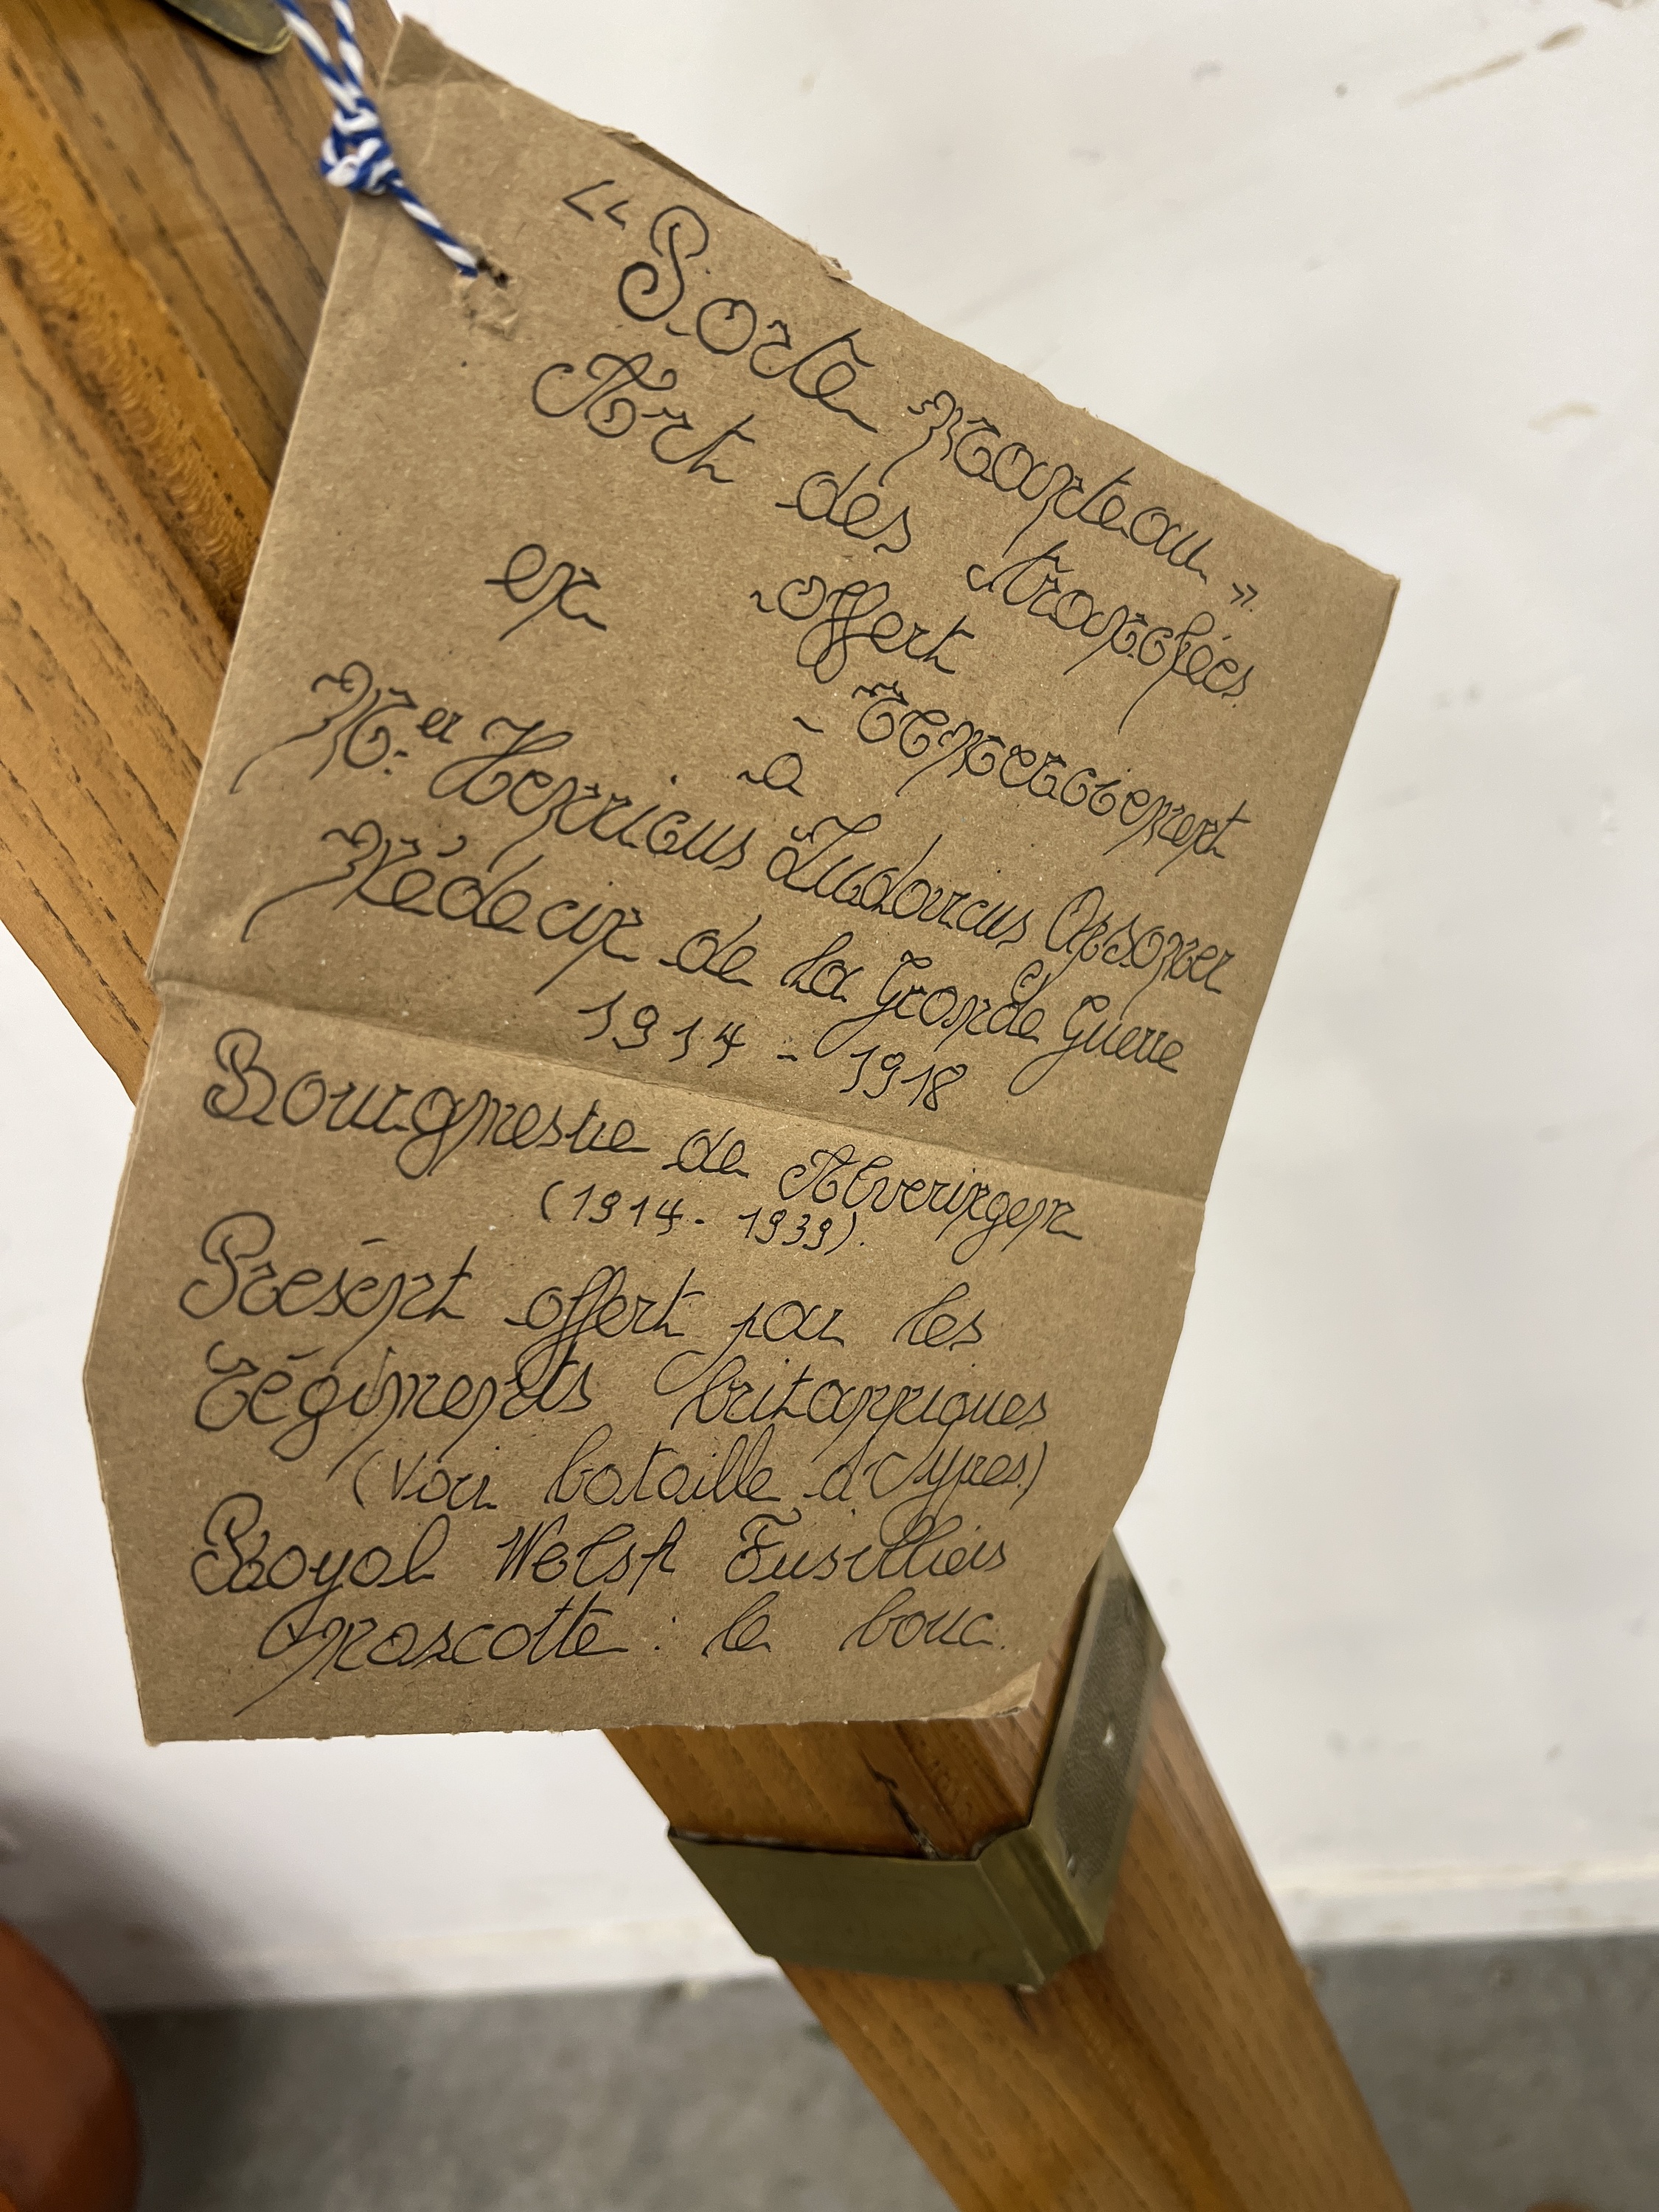 “Porte manteau”.
Art des tranchées
offert
en remerciement
à
Mr Henricus Ludovicus
Médecin de la Grande Guerre
1914 - 1918
Bourgmestre de Alveringem
(1914 - 1939).
Présent offert par les
régiments britanniques
(voir bataille d'Ypres)
Royal Welsh Fusilliers
mascotte : le bouc.